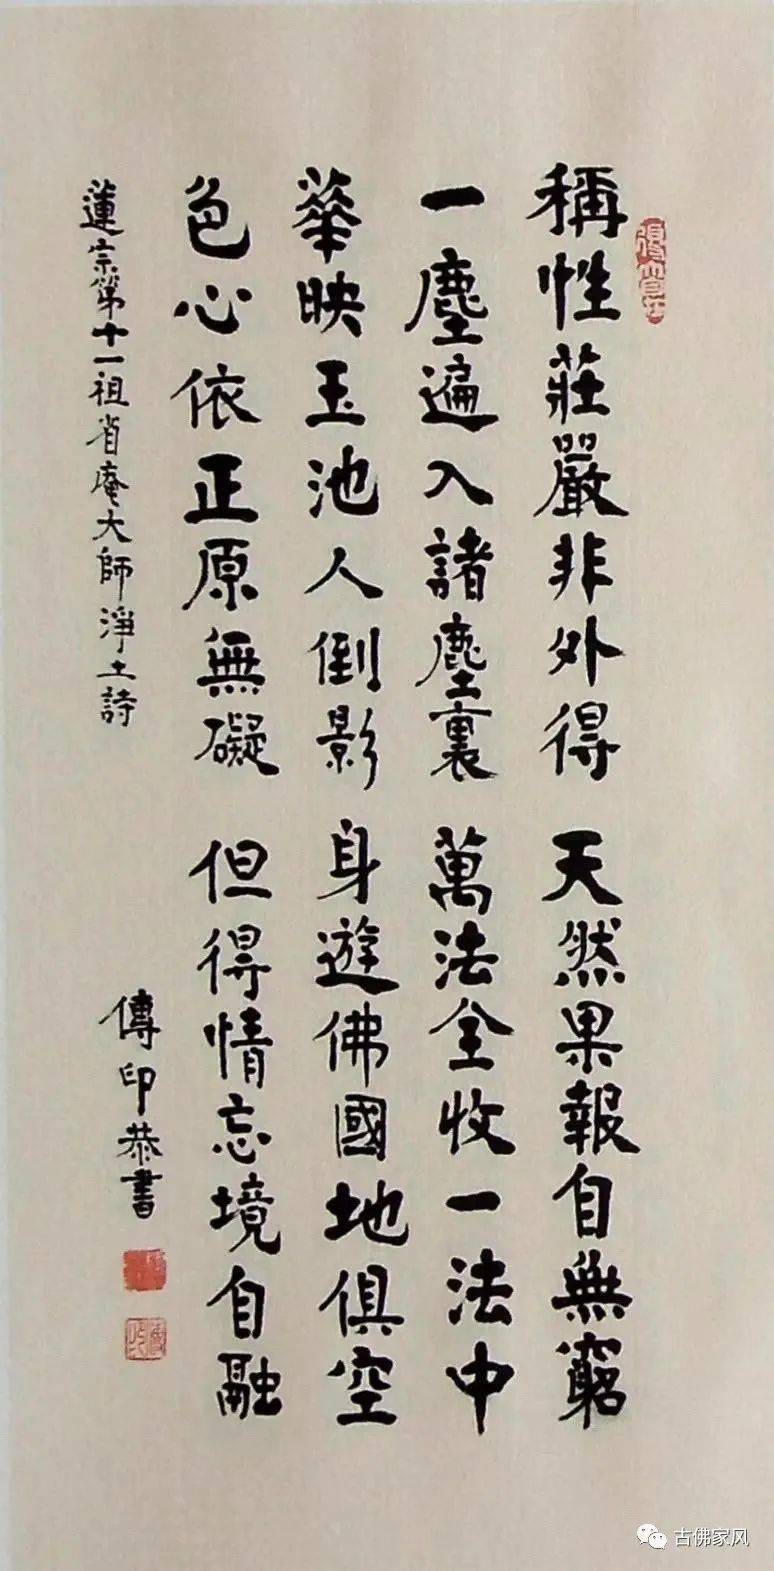 稱性莊嚴非外得　天然果報自無窮
一塵遍入諸塵裏　萬法全收一法中
華映玉池人倒影　身遊佛國地俱空
色心依正原無礙　但得情忘境自融
蓮宗第十一祖省庵大師淨土詩
傳印恭書
古佛家风